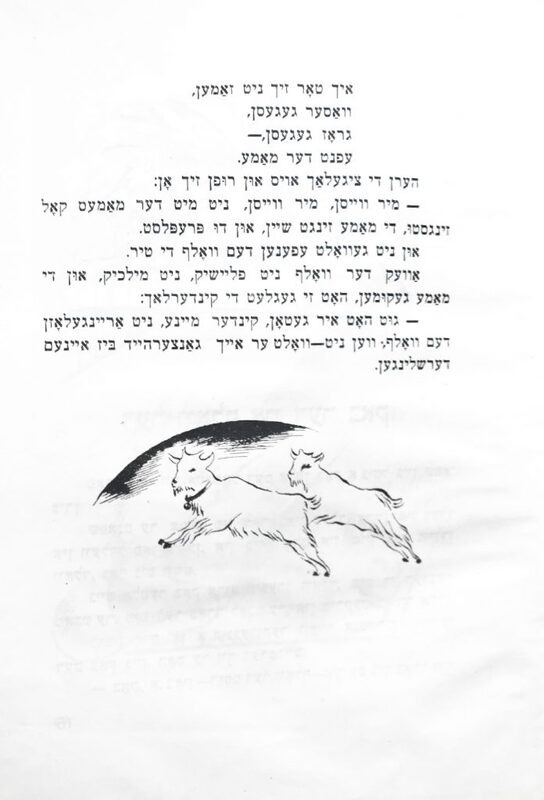 איך טאָר זיך ניט זאַמען,
וואַסער געגעסן,
גראָז געגעסן,—
עפנט דער מאַמע.
הערן די ציגעלאַך אויס און רופן זיך אָן:
— מיר ווייסן, מיר ווייסן, ניט מיט דער מאַמעס קאָל
זינגסטו, די מאַמע זינגט שיין, און דו פּרעפּלסט.
און ניט געוואָלט עפענען דעם וואָלף די טיר.
אַוועק דער וואָלף ניט פליישיק, ניט מילכיק, און די
מאַמע געקומען, האָט זי געגלעט די קינדערלאך:
— גוט האָט איר געטאָן, קינדער מיינע, ניט אַריינגעלאָזן
דעם וואָלף, ווען ניט—וואָלט ער אייך גאַנצערהייד ביז איינעם
דערשלינגען.